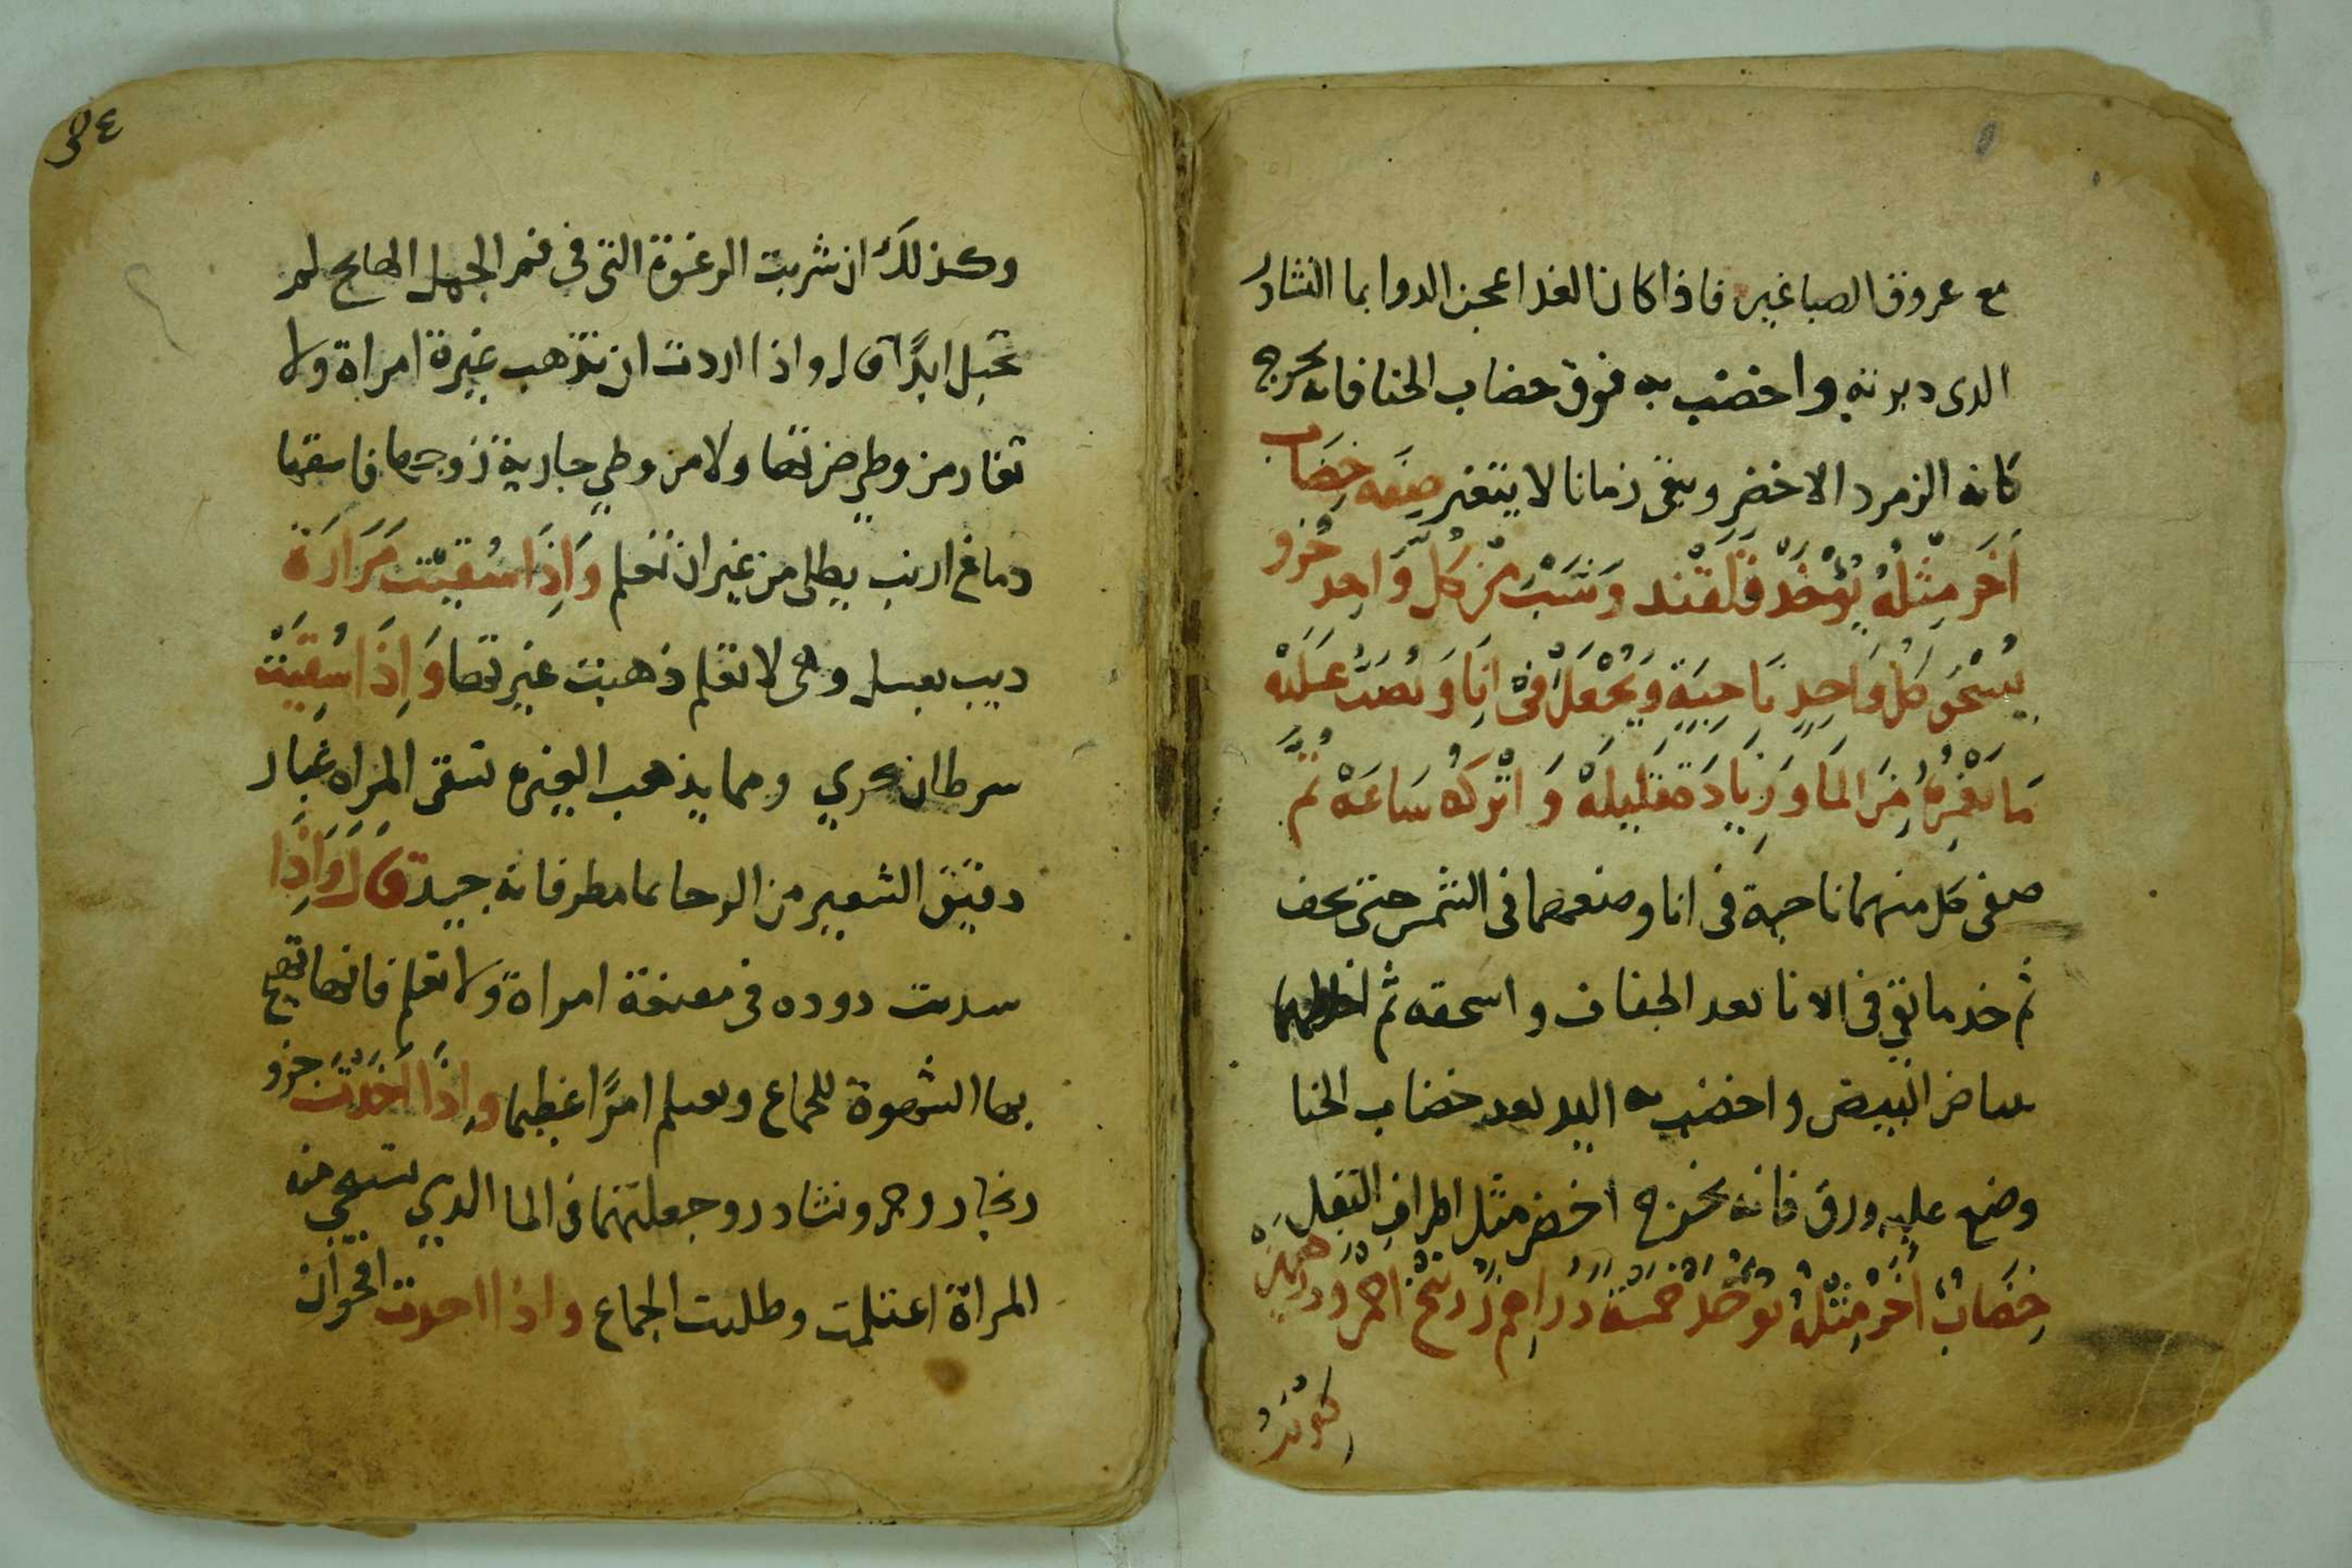 مع عروق الصباغين فاذا كان الغد اعجن الدوا بما النشادر
الدى دبرته واخضب به فوق خضاب الحنا فانه يخرج
كانه الزمرد الاخضر ويبقى زمانا لا يتغير صفه خضاب
اخر مثله يؤخذ قلقند وشب من كل واحد جزو
يسحق كل واحد ناحية ويجعل في انا ويصب عليه
ما يغمره من الما وزيادة قليله واتركه ساعه ثم
صفى كل منهما ناحية فى انا وضعهما فى الشمس حتى يجف
ثم خد ما بقي فى الانا بعد الجفاف واسحقه ثم اخلطهما
ببياض البيض واخضب به اليد بعد خضاب الحنا
وضع عليه ورق فانه يخرج اخضر مثل اطراف البقل
خضاب اخر مثله يؤخذ خمسة دراهم زرنيخ احمر ودرهمين
٥٤
وكذلك ان شربت الرغوة التى فى فم الجمل الهايج لم
تحبل ابدًا قال واذا اردت ان تذهب غيرة امراة ولا
تغار من وطي ضرتها ولا من وطي جارية زوجها فاسقها
دماغ ارنب بطلى من غير ان تعلم وَاِذَا سُقيَت مَرَارَة
ديب بعسل وهى لا تعلم ذهبت غيرتها وَاِذَا سُقيَت
سرطان بحري ومما يذهب الغيره تسقى المراه غبار
دقيق الشعير من الرحا بما مطر فانه جيد قال وَاِذَا
سدبت دوده في مقنعة امراة ولا تعلم فانها تهيج
بها الشهوة للجماع وبعلم امرًا عظيما واذا اخذت جزو
زنجار وجزو نشادر وجعلتهما فى الما الدي تستنجي منه
المراة اغتلمت وطلبت الجماع واذا احدت اقحوان